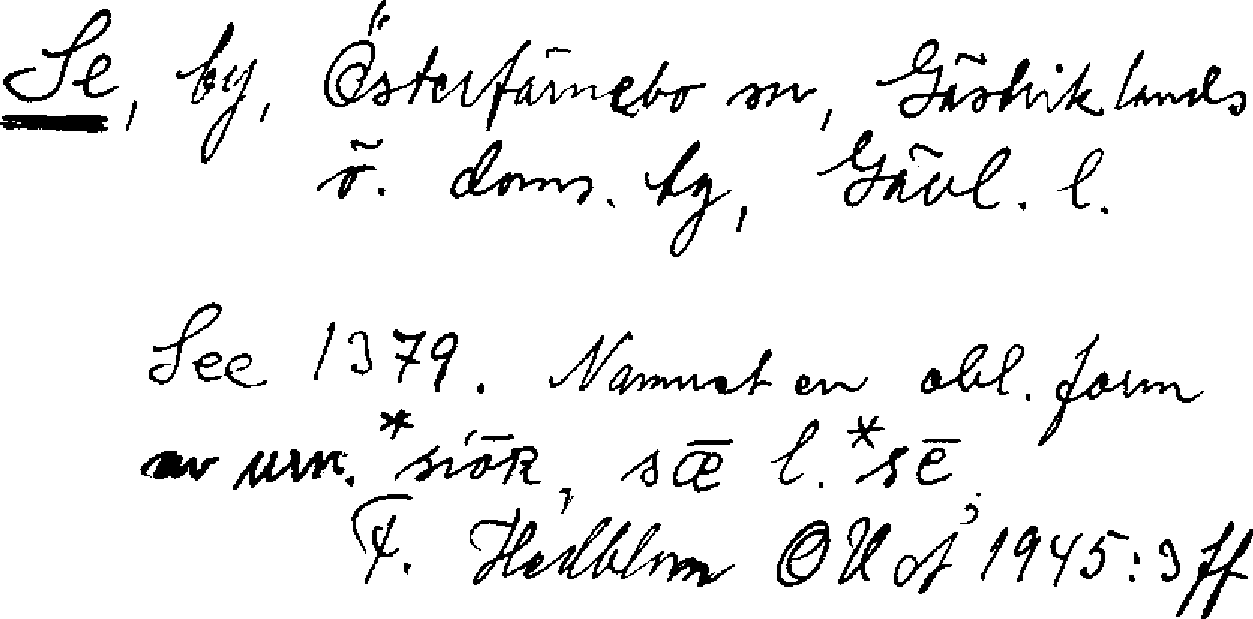 Se, by, Österfärnebo sn, Gästriklands
ö. doms. by, Gävl. l.
See 1379. Namnet en obl. form
av urn. *siōR, sǣ l. *sē,
F. Hedblom OUÅ 1945:3 ff